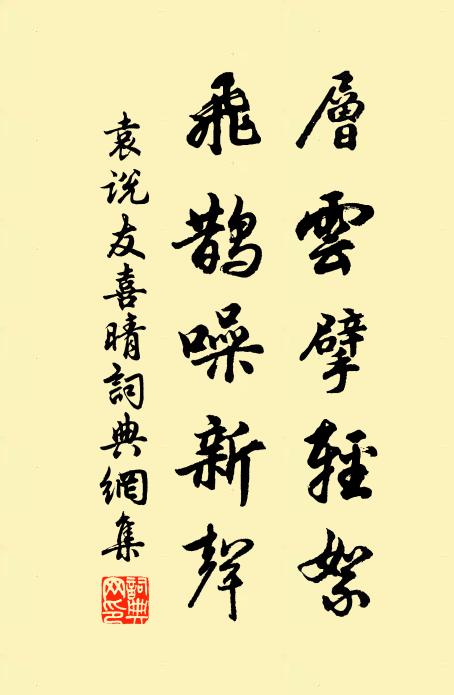 層雲擘輕絮
飛鵲噪新聲
袁说友喜晴詞典網集
詞典网印